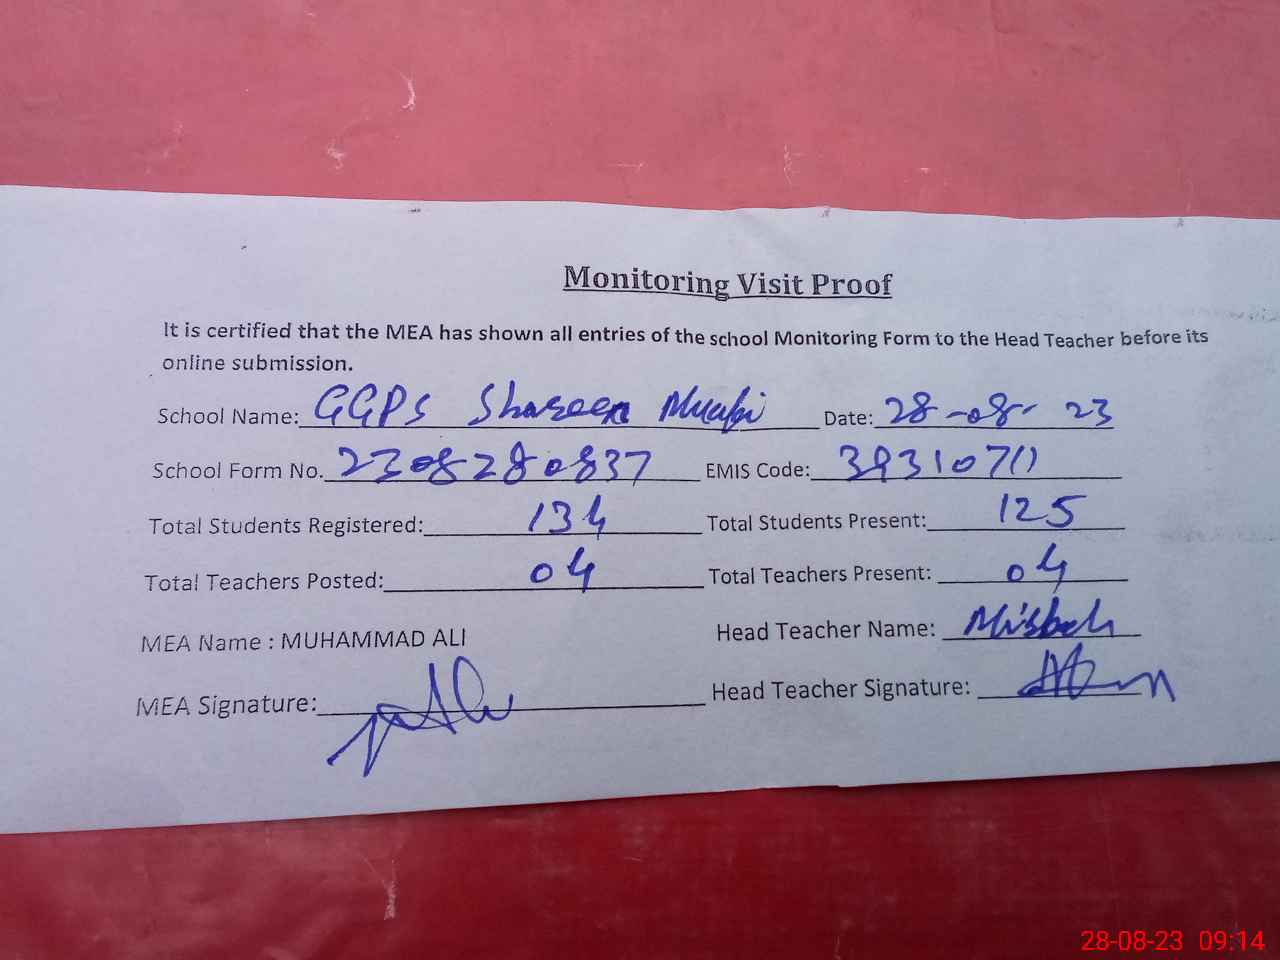 Monitoring Visit Proof
It is certified that the MEA has shown all entries of the school Monitoring Form to the Head Teacher before its
online submission.
School Name: GGPS Shareen Date: 28-08-23
School Form No. 230828 0837 EMIS Code: 39310711
Total Students Registered: 134 Total Students Present: 125
Total Teachers Posted: 04 Total Teachers Present: 04
MEA Name : MUHAMMAD ALI Head Teacher Name: Misbah
MEA Signature: Head Teacher Signature:
28-08-23 09:14